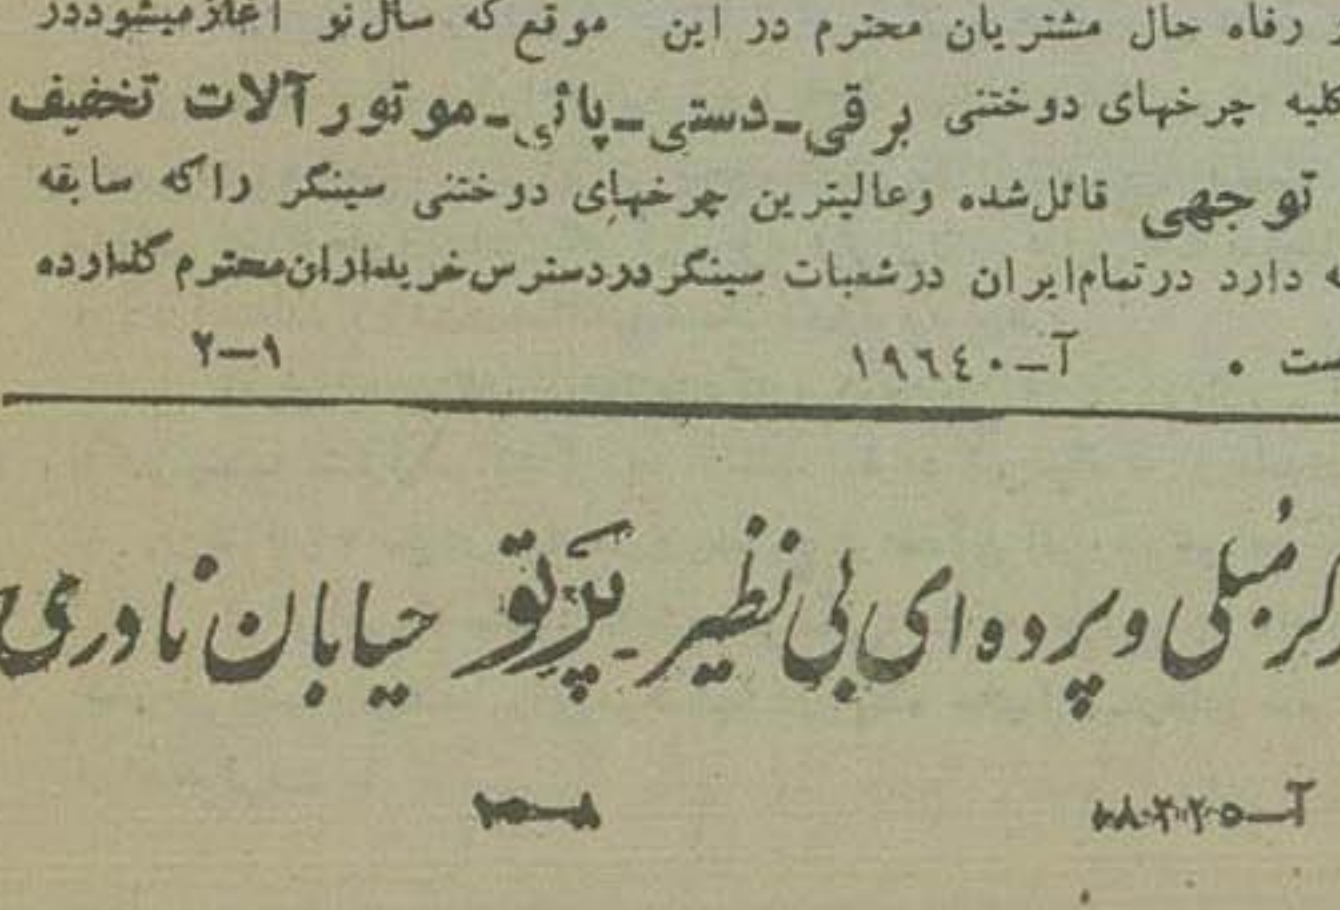 رفاه حال مشتریان محترم در این موقع که سال نو آغاز میشود در
کلیه چرخهای دوختنی برقی-دستی-پائی-موتور آلات تخفیف
توجهی قائل شده و عالیترین چرخهای دوختنی سینگر را که سابقه
دارد در تمام ایران در شعبات سینگر در دسترس خریداران محترم گذارده
ست .   آ-۱۹٦٤۰   ۲-۹
مبلی و پرده‌ای بی نظیر - پرتو خیابان نادری